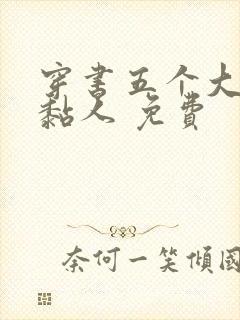 穿书五个大
黏人 免費
奈何一笑傾國